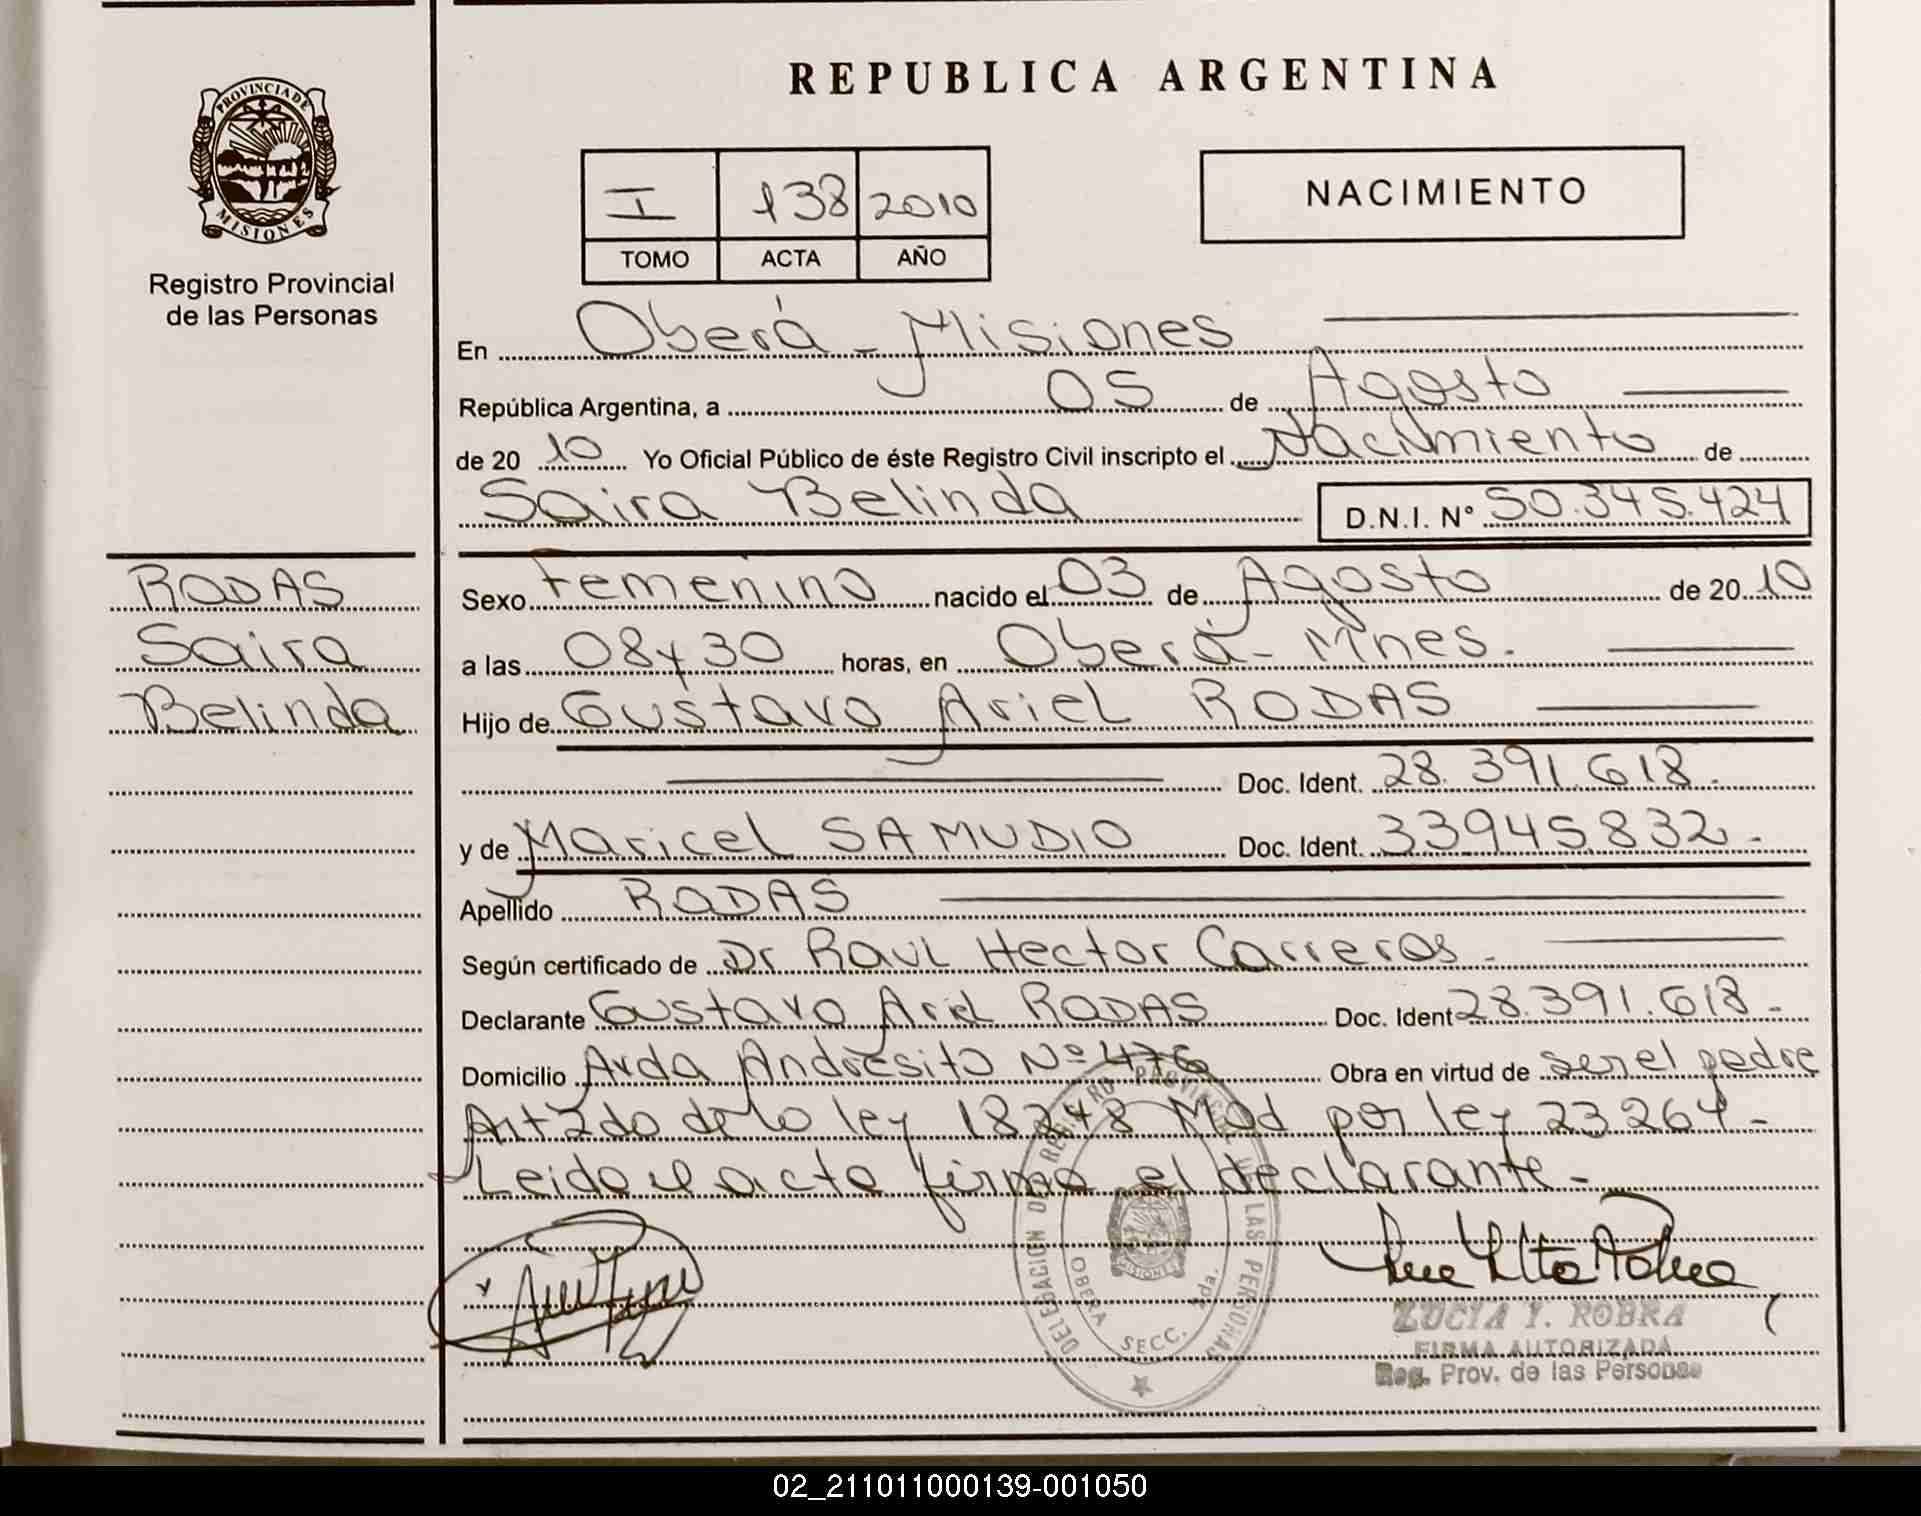 REPUBLICA ARGENTINA
PROVINCIA DE
MISIONES
Registro Provincial
de las Personas
I 138 2010
TOMO ACTA AÑO
NACIMIENTO
En Oberá - Misiones
República Argentina, a 05 de Agosto
de 20 10 Yo Oficial Público de éste Registro Civil inscripto el Nacimiento de
Saira Belinda D.N.I. N° 50.345.424
RODAS
Saira
Belinda
Sexo Femenino nacido el 03 de Agosto de 20 10
a las 08 y 30 horas, en Oberá - Mnes.
Hijo de Gustavo Ariel RODAS
Doc. Ident. 28.391.618.
y de Maricel SAMUDIO Doc. Ident. 33945832.-
Apellido RODAS
Según certificado de Dr Raul Hector Carreros -
Declarante Gustavo Ariel RODAS Doc. Ident 28.391.618.-
Domicilio Avda Andresito Nº 476 Obra en virtud de ser el padre
Art 2do de la ley 18248 Mod por ley 23264 -
Leida el acta firma el declarante -
DELEGACION DE REGISTRO PROVINCIAL DE LAS PERSONAS
MISIONES
OBERA SECC. 2da.
LUCIA Y. ROBRA
FIRMA AUTORIZADA
Reg. Prov. de las Personas
02_211011000139-001050